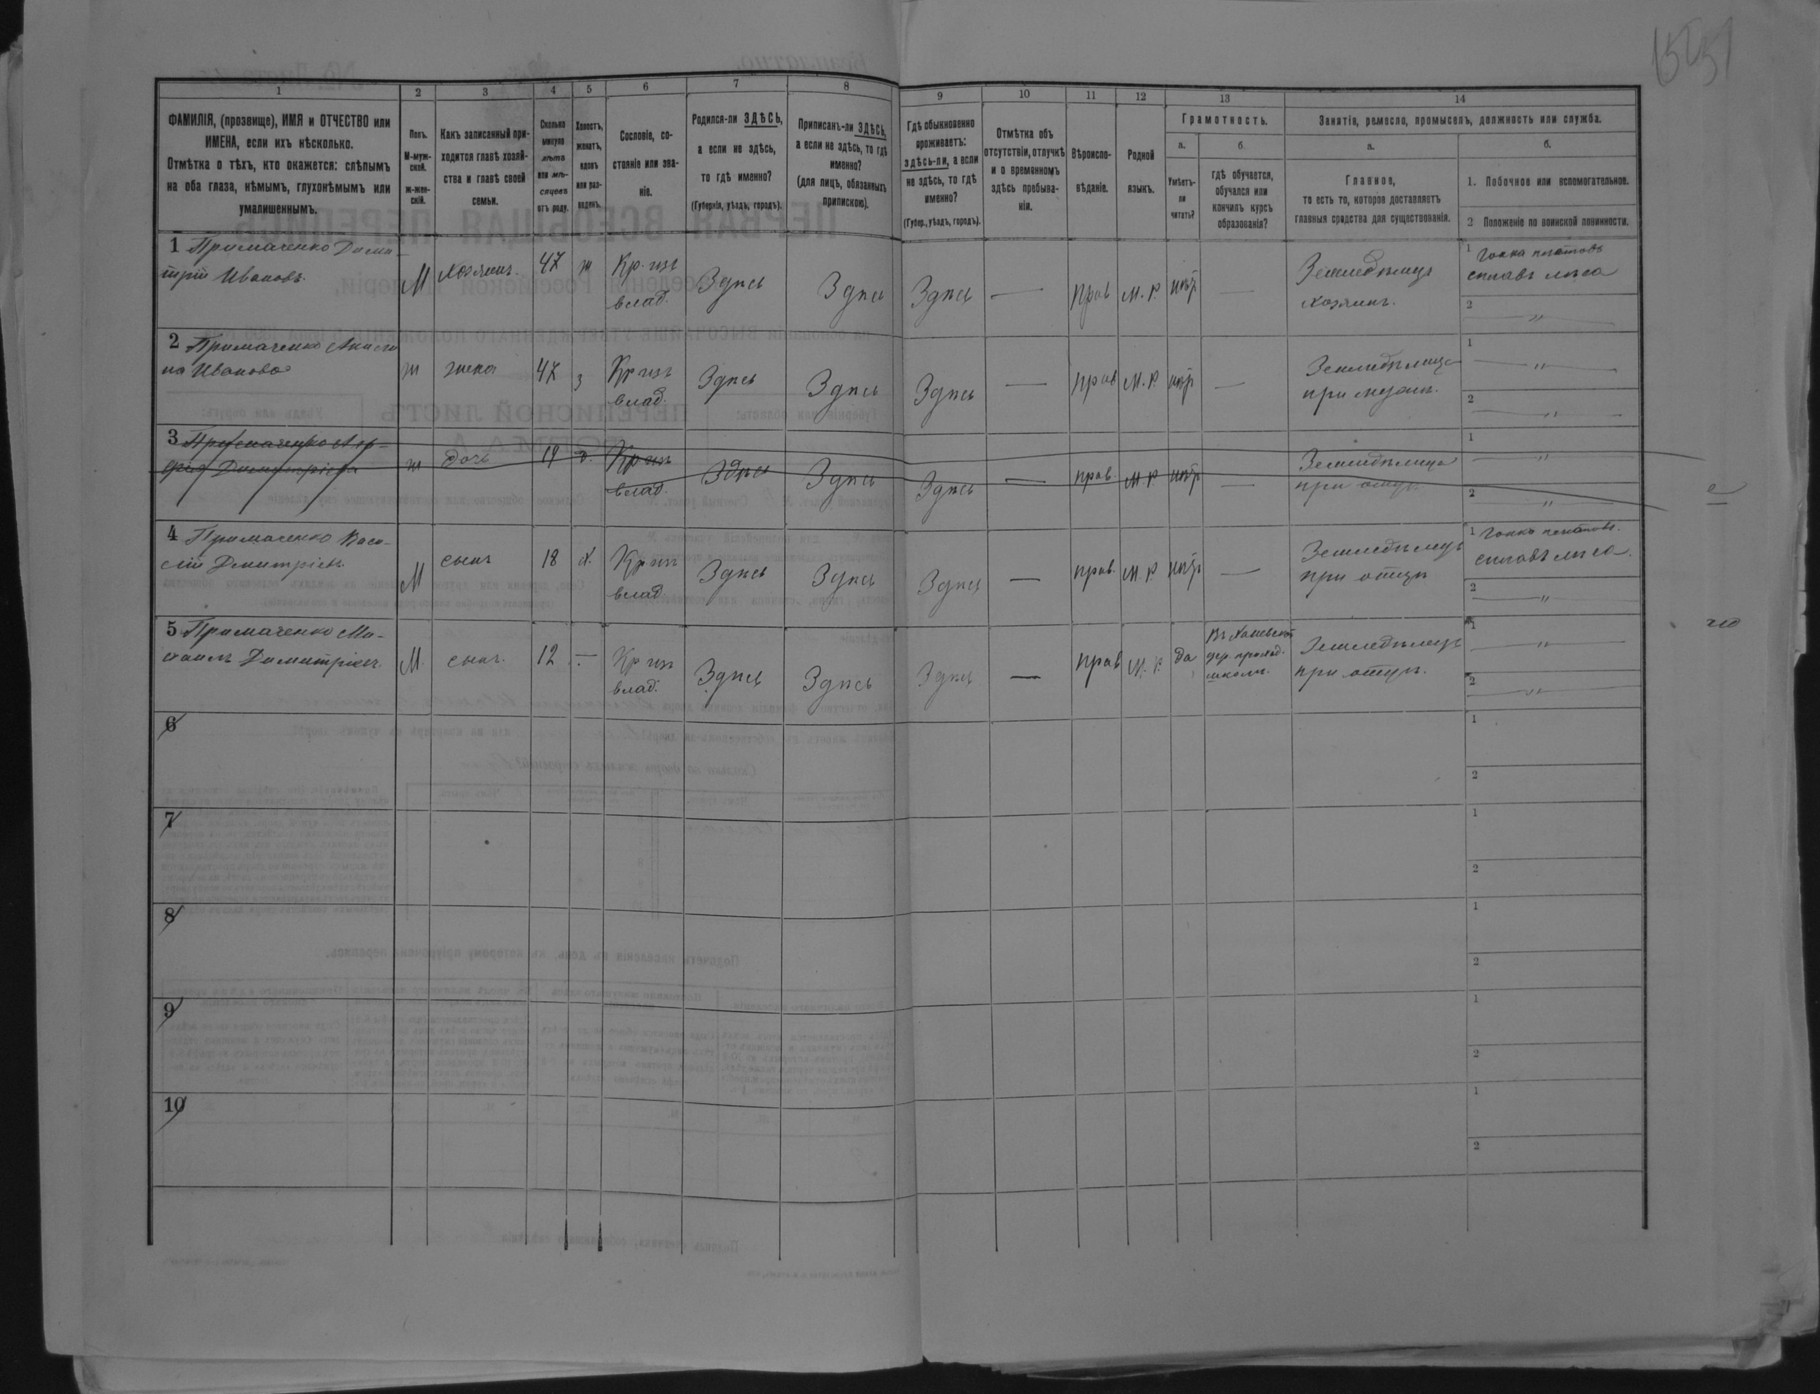 1 2 3 4 5 6 7 8 9 10 11 12 13 14
ФАМИЛІЯ, (прозвище), ИМЯ и ОТЧЕСТВО или
ИМЕНА, если ихъ нѣсколько.
Отмѣтка о тѣхъ, кто окажется: слѣпымъ
на оба глаза, нѣмымъ, глухонѣмымъ или
умалишеннымъ.
Полъ.
М-муж-
ской.
ж-жен-
скій.
Какъ записанный при-
ходится главѣ хозяй-
ства и главѣ своей
семьи.
Сколько
минуло
лѣтъ
или мѣ-
сяцевъ
отъ роду.
Холостъ,
женатъ,
вдовъ
или раз-
веденъ.
Сословіе, со-
стояніе или зва-
ніе.
Родился-ли ЗДѢСЬ,
а если не здѣсь,
то гдѣ именно?
(Губернія, уѣздъ, городъ).
Приписанъ-ли ЗДѢСЬ,
а если не здѣсь, то гдѣ
именно?
(для лицъ, обязанныхъ
припискою).
Гдѣ обыкновенно
проживаетъ:
ЗДѢСЬ-ЛИ, а если
не здѣсь, то гдѣ
именно?
(Губер., уѣздъ, городъ).
Отмѣтка объ
отсутствіи, отлучкѣ
и о временномъ
здѣсь пребыва-
ніи.
Вѣроиспо-
вѣданіе.
Родной
языкъ.
Грамотность.
а.
Умѣетъ-
ли
читать?
б.
гдѣ обучается,
обучался или
кончилъ курсъ
образованія?
Занятіе, ремесло, промыселъ, должность или служба.
а.
Главное,
то есть то, которое доставляетъ
главныя средства для существованія.
б.
1. Побочное или вспомогательное.
2 Положеніе по воинской повинности.
1 Примаченко Дими-
трій Ивановъ М Хозяинъ 47 ж Кр. изъ влад. Здѣсь Здѣсь Здѣсь — Прав М. Р. нѣт — Земледѣлецъ хозяинъ. 1 Гонка плотовъ сплавъ лѣса 2 — " —
2 Примаченко
Иванова ж жена 47 з Кр изъ влад. Здѣсь Здѣсь Здѣсь — прав М. Р. нѣт — Земледѣлица при мужѣ. 1 — " — 2 — " —
3 Примаченко
Димитріева ж дочь 19 д. Кр изъ влад. Здѣсь Здѣсь Здѣсь — прав. М. Р. нѣт — Земледѣлица при отцѣ 1 — " — 2 — " —
4 Примаченко Васи-
лій Димитріевъ М сынъ 18 х. Кр изъ влад. Здѣсь Здѣсь Здѣсь — прав. М. Р. нѣт — Земледѣлецъ при отцѣ 1 Гонка плотовъ. сплавъ лѣса. 2 — " —
5 Примаченко Ми-
хаилъ Димитріевъ М. сынъ. 12 — Кр изъ влад. Здѣсь Здѣсь Здѣсь — прав М. Р. да Въ школѣ. Земледѣлецъ при отцѣ. 1 — " — 2 — " —
6 1
2
7 1
2
8 1
2
9 1
2
10 1
2